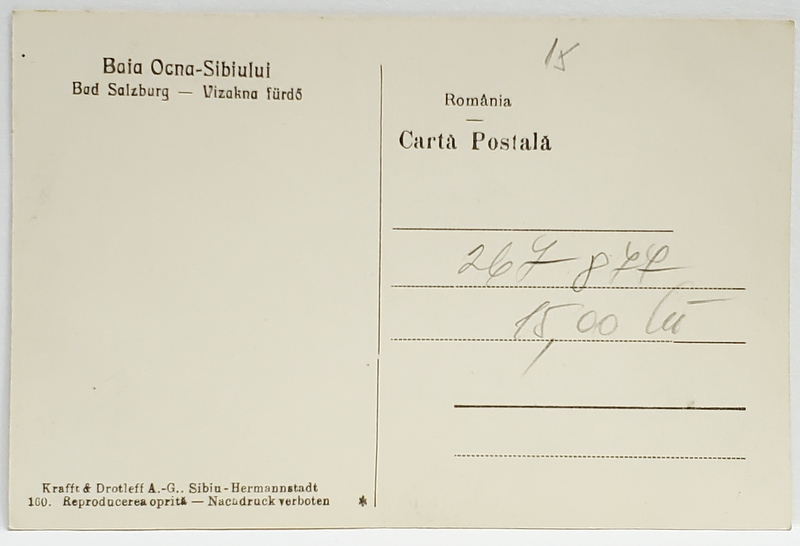 Baia Ocna-Sibiului
Bad Salzburg — Vizakna fürdő
15
România
Cartă Postală
267 877
15,00 lei
Krafft & Drotleff A.-G., Sibiu-Hermannstadt
160. Reproducerea oprită — Nachdruck verboten *